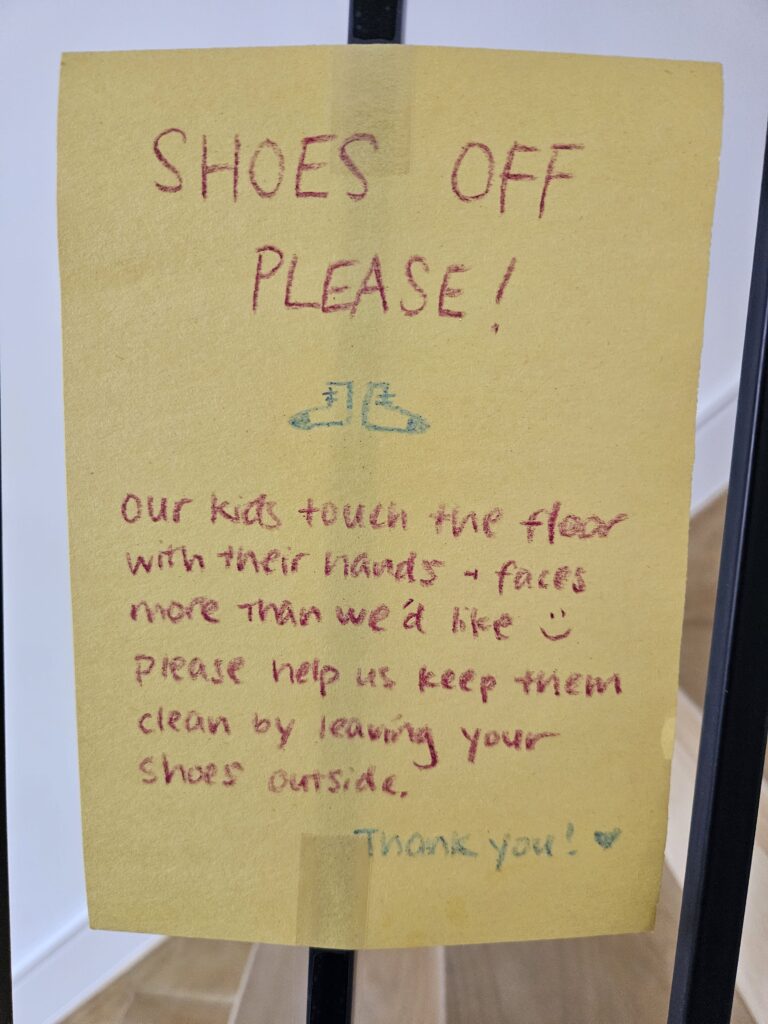 SHOES OFF
PLEASE!
our kids touch the floor
with their hands + faces
more than we'd like :)
please help us keep them
clean by leaving your
shoes outside.
Thank you! ♥